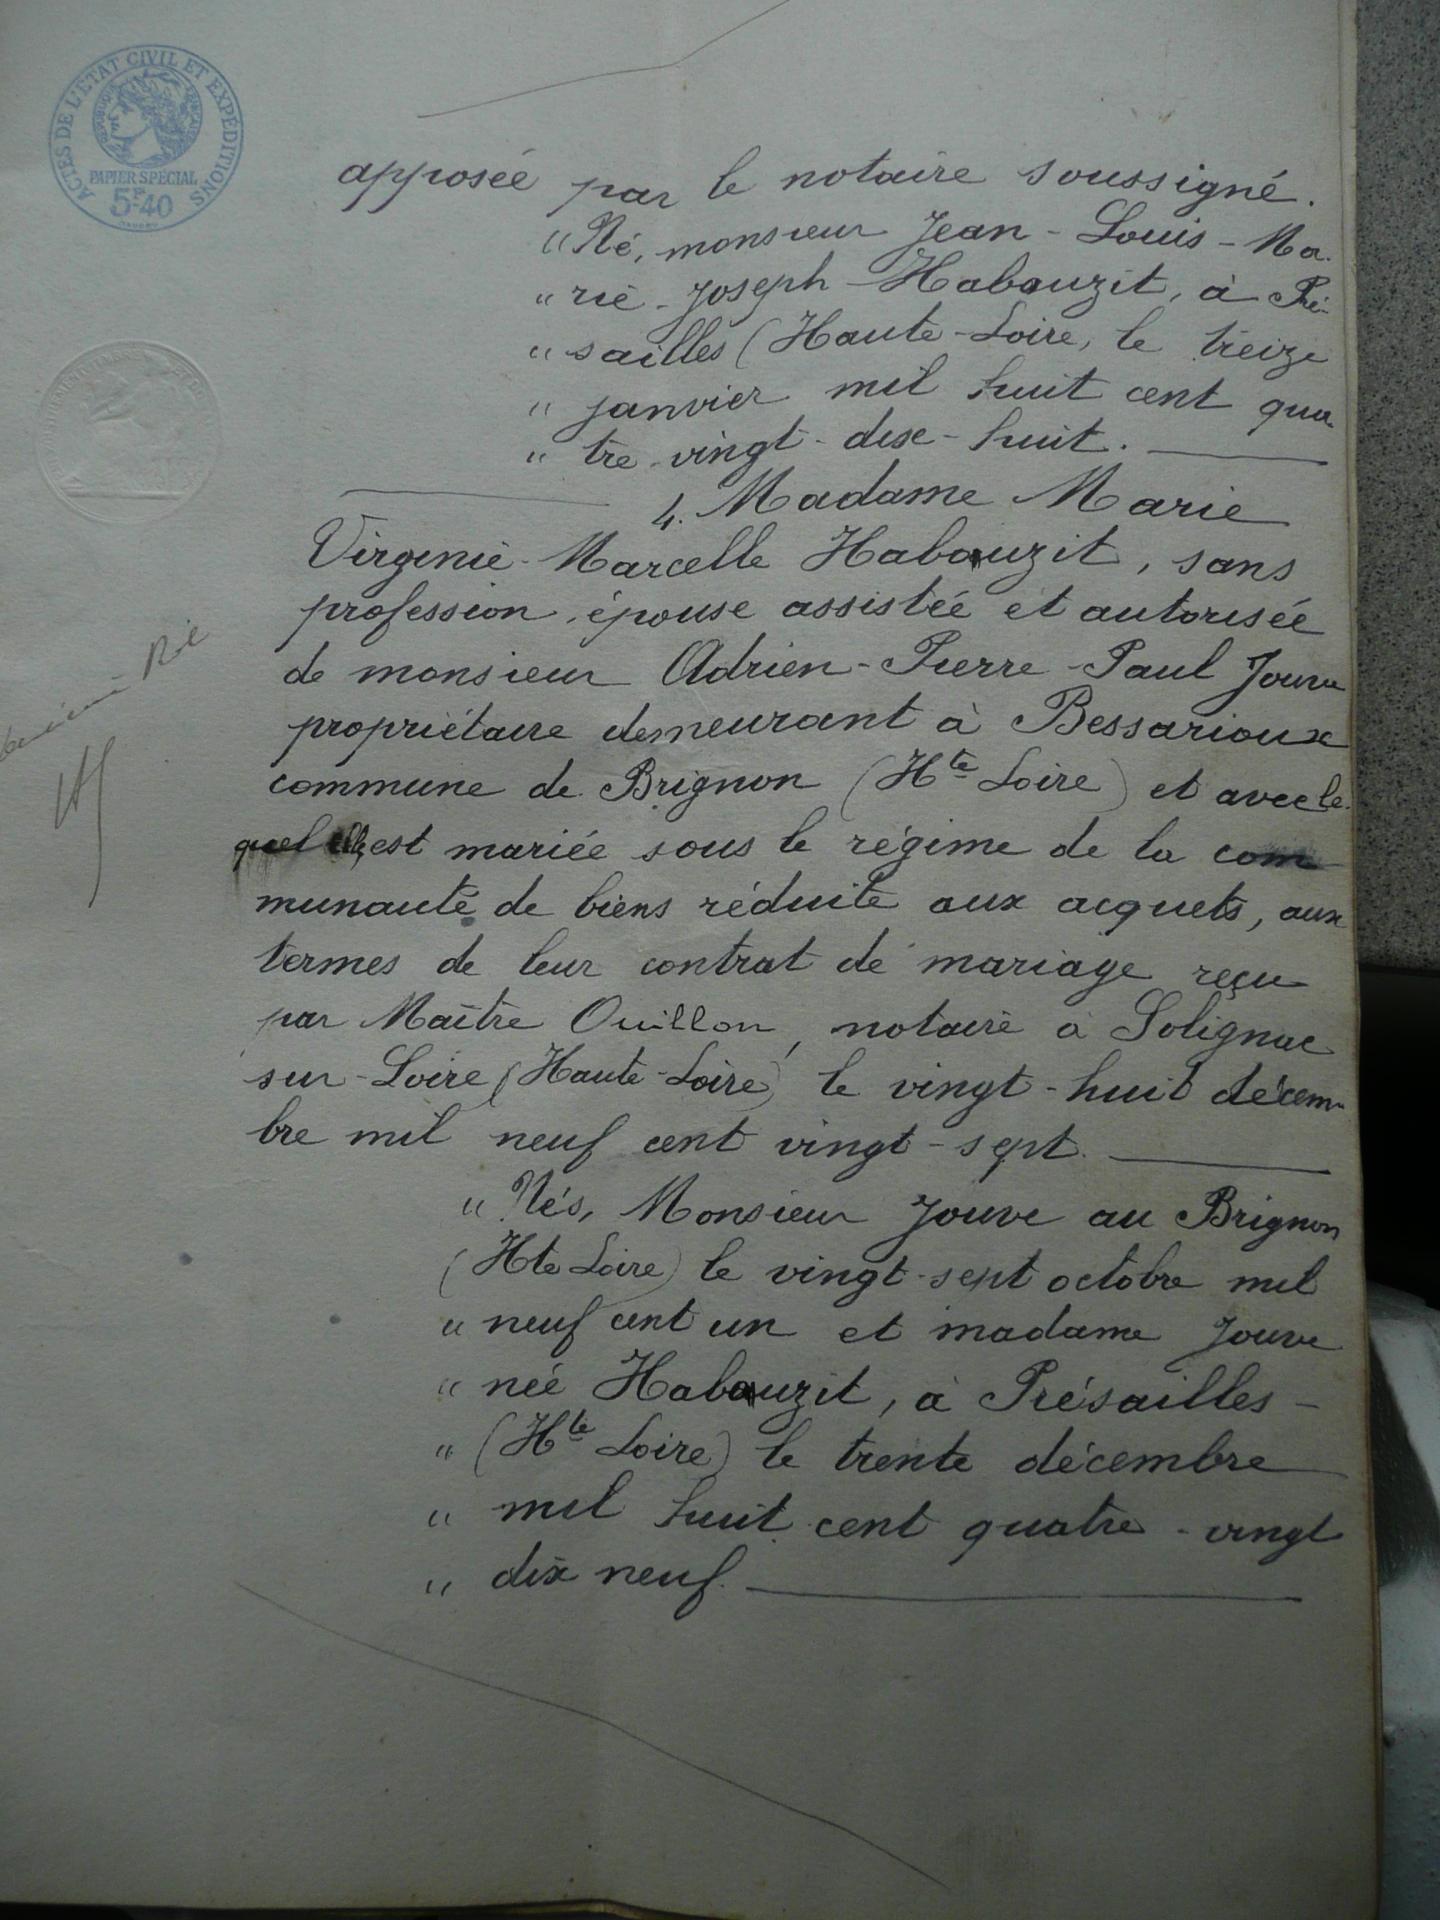 ACTES DE L'ÉTAT CIVIL ET EXPÉDITIONS
RÉPUBLIQUE FRANÇAISE
PAPIER SPÉCIAL
5F.40
apposée par le notaire soussigné.
" Né, monsieur Jean-Louis-Ma-
" rie-Joseph Habauzit, à Pré-
" sailles (Haute-Loire, le treize
" janvier mil huit cent qua
" tre-vingt-dix-huit.
4. Madame Marie
Virginie-Marcelle Habauzit, sans
profession, épouse assistée et autorisée
de monsieur Adrien-Pierre-Paul Jouve
propriétaire demeurant à Bessarioux
commune de Brignon (Hte Loire) et avec le-
quel elle est mariée sous le régime de la com
munauté de biens réduite aux acquets, aux
termes de leur contrat de mariage reçu
par Maître Ouillon, notaire à Solignac
sur-Loire (Haute-Loire) le vingt-huit décem-
bre mil neuf cent vingt-sept.
" Nés, Monsieur Jouve au Brignon
(Hte Loire) le vingt-sept octobre mil
" neuf cent un et madame Jouve
" née Habauzit, à Présailles-
" (Hte Loire) le trente décembre
" mil huit cent quatre-vingt
" dix neuf.